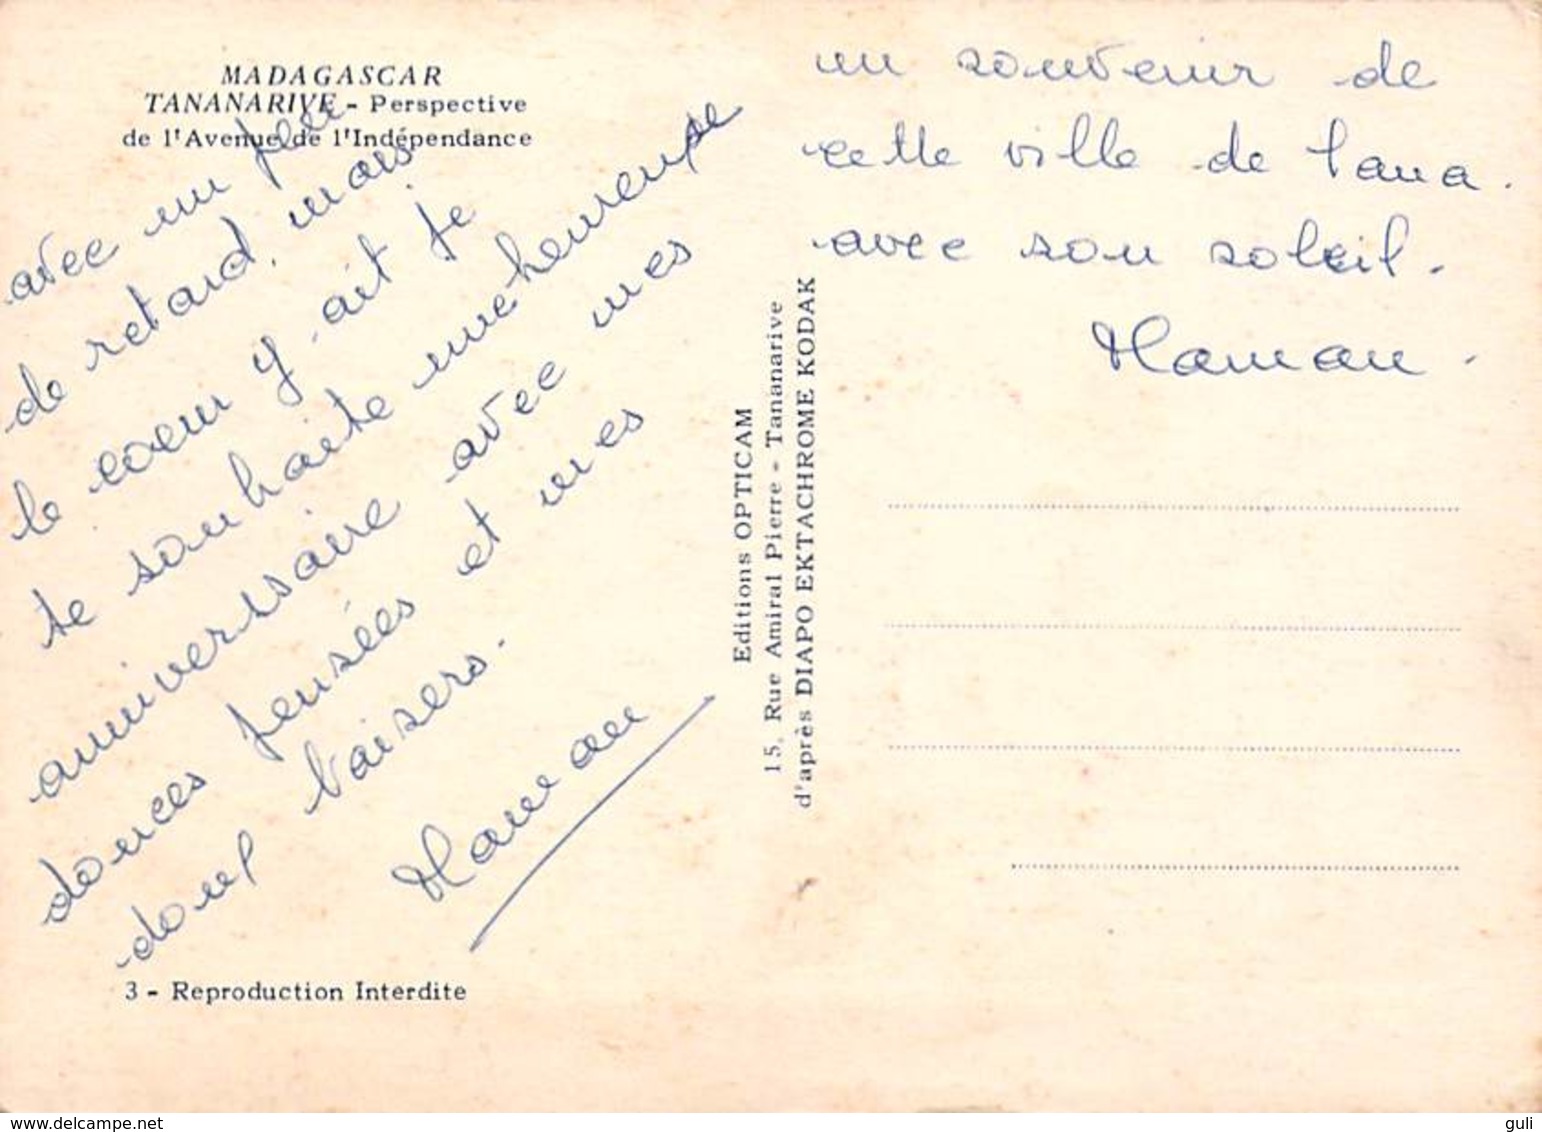 MADAGASCAR
TANANARIVE - Perspective
de l'Avenue de l'Indépendance
avec un peu
de retard, mais
le coeur y ait je
te souhaite une heureuse
anniversaire avec mes
douces pensées et mes
doux baisers.
Maman
3 - Reproduction Interdite
Editions OPTICAM
15, Rue Amiral Pierre - Tananarive
d'après DIAPO EKTACHROME KODAK
un souvenir de
cette ville de Tana.
avec son soleil.
Maman.
www.delcampe.net
guli